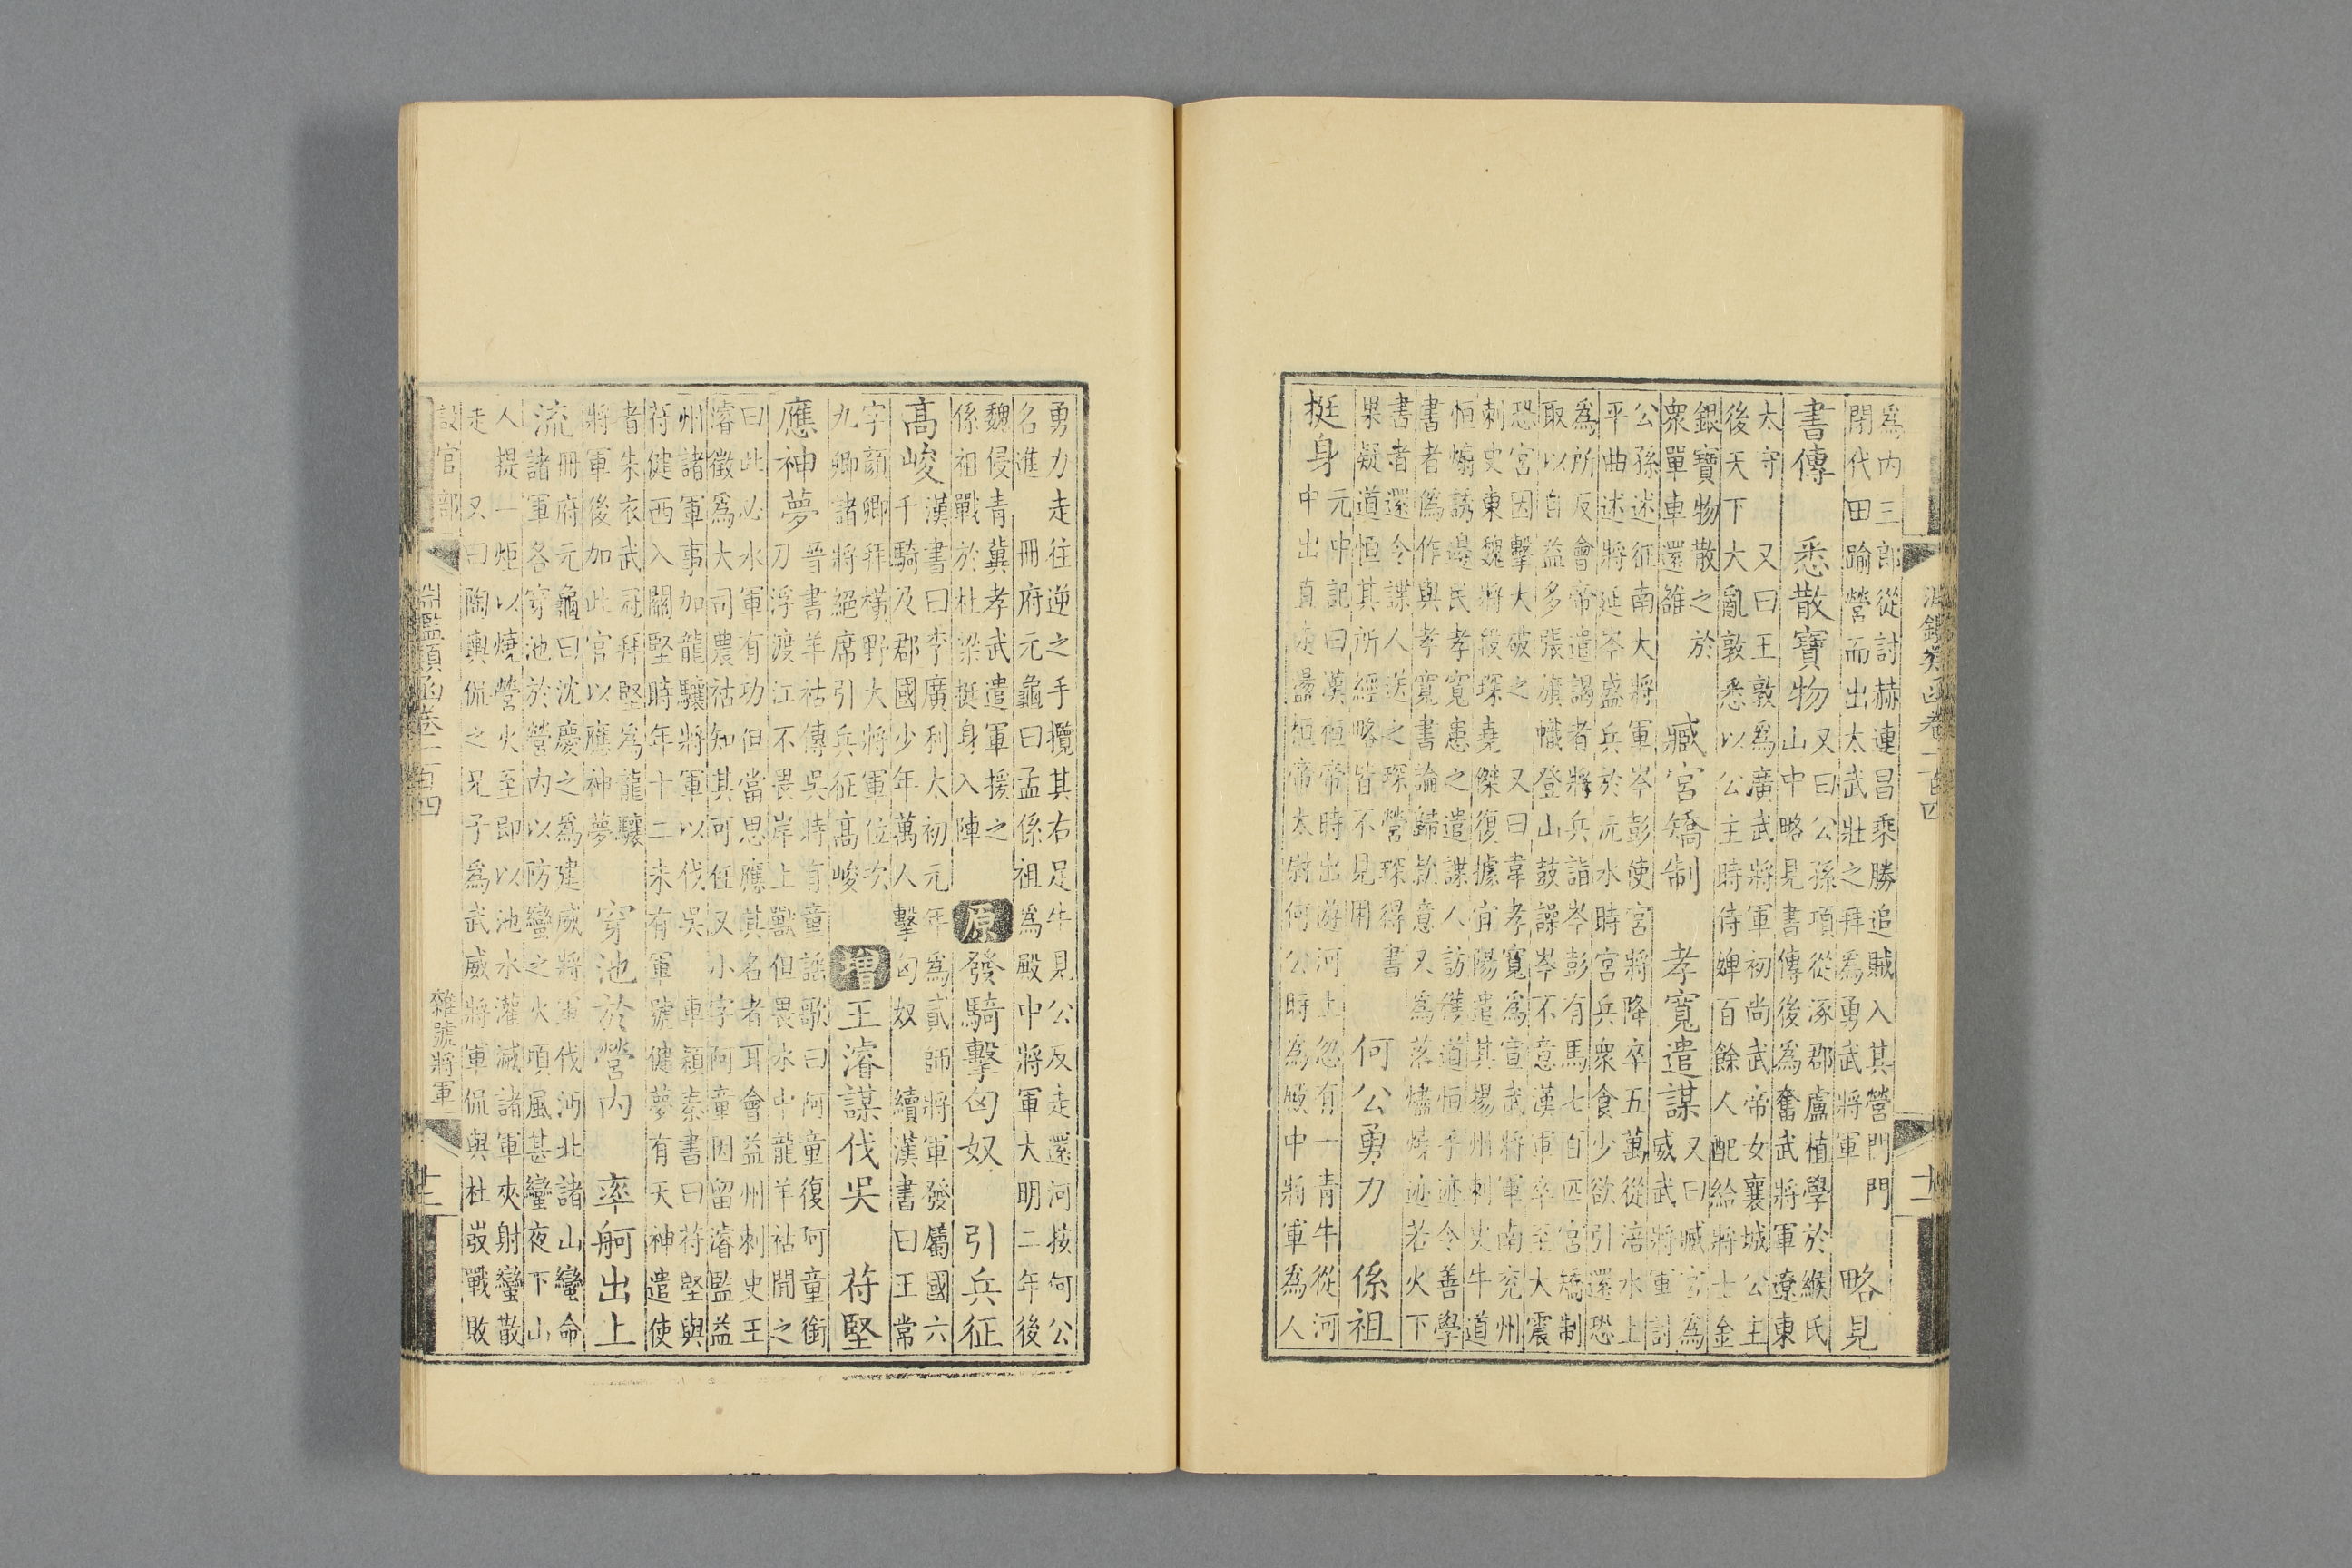 淵鑑類函卷一百四
十一
爲内三郎從討赫連昌乘勝追賊入其營門門
閉代田踰營而出太武壯之拜爲勇武將軍
略見
書傳 悉散寶物
又曰公孫項從涿郡盧植學於緱氏
山中略見書傳後爲奮武將軍遼東
太守 又曰王敦爲廣武將軍初尚武帝女襄城公主
後天下大亂敦悉以公主時侍婢百餘人配給將士金
銀寶物散之於
衆單車還雒
臧宮矯制 孝寬遣謀
又曰臧宮爲
威武將軍討
公孫述征南大將軍岑彭使宮將降卒五萬從涪水上
平曲述將延岑盛兵於沅水時宮兵衆食少欲引還恐
爲所反會帝遣謁者將兵詣岑彭有馬七百匹宮矯制
取以自益多張旗幟登山鼓譟岑不意漢軍卒至大震
恐宮因擊大破之 又曰韋孝寬爲宣武將軍南兖州
刺史東魏將段琛堯傑復據宜陽遣其揚州刺史牛道
恒煽誘邊民孝寬患之遣諜人訪獲道恒手迹令善學
書者爲作與孝寬書論歸款意又爲落燼燒迹若火下
書者還令諜人送之琛營琛得書
果疑道恒其所經略皆不見用
何公勇力 係祖
挺身
元中記曰漢桓帝時出游河上忽有一青牛從河
中出直走盪桓帝太尉何公時爲殿中將軍爲人
勇力走往逆之手攬其右足牛見公反走還河按何公
名進 冊府元龜曰孟係祖爲殿中將軍大明二年後
魏侵青冀孝武遣軍援之
係祖戰於杜梁挺身入陣
原 發騎擊匈奴 引兵征
高峻
漢書曰李廣利太初元年爲貳師將軍發屬國六
千騎及郡國少年萬人擊匈奴 續漢書曰王常
字顔卿拜橫野大將軍位次
九卿諸將絶席引兵征高峻
增 王濬謀伐吳 苻堅
應神夢
晉書羊祜傳吳時有童謠歌曰阿童復阿童銜
刀浮渡江不畏岸上獸但畏水中龍羊祜聞之
曰此必水軍有功但當思應其名者耳會益州刺史王
濬徵爲大司農祜知其可任又小字阿童因留濬監益
州諸軍事加龍驤將軍以伐吳 車穎秦書曰苻堅與
苻健西入關堅時年十二未有軍號健夢有天神遣使
者朱衣武冠拜堅爲龍驤
將軍後加此官以應神夢
穿池於營内 率舸出上
流
冊府元龜曰沈慶之爲建威將軍伐沔北諸山蠻命
諸軍各穿池於營内以防蠻之火頃風甚蠻夜下山
人提一炬以燒營火至即以池水灌滅諸軍夾射蠻散
走 又曰陶輿侃之兄子爲武威將軍侃與杜弢戰敗
設官部
淵鑑類函卷一百四
雜號將軍
十二